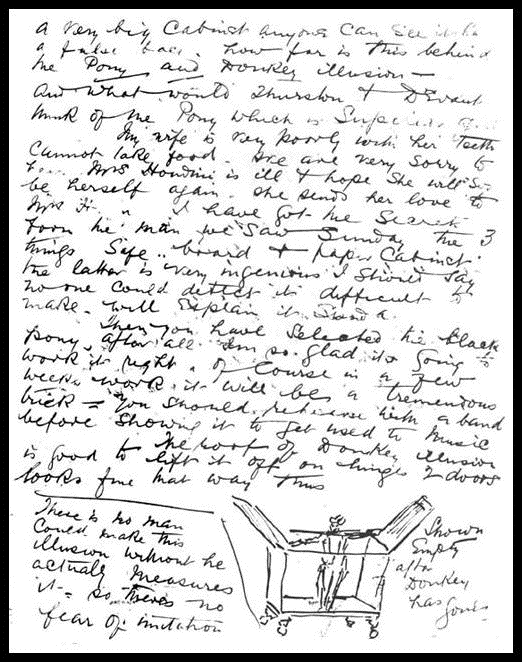 a very big Cabinet anyone can see it has
a false back. how far is this behind
the Pony and Donkey illusion —
and what would Thurston & Devant
think of the Pony which is Superior
My wife is very poorly with her Teeth
Cannot take food. We are very sorry to
Mrs Houdini is ill & hope She will soon
be herself again. She sends her love to
Mrs H. I have got the Secrets
from the man we Saw Sunday the 3
things Safe .. board & paper Cabinet.
the latter is very ingenious I Should Say
no one could detect it difficult to
make. will Explain it Sunda.
Then you have Selected the black
Pony after all Im so glad its going to
work it right. of Course in a few
weeks work it will be a tremendous
trick = You should rehearse with a band
before Showing it to get used to Music
The roof of Donkey illusion
is good to lift it off on hinges 2 doors
looks fine that way thus
There is no man
Could make this
illusion without he
actually measures
it - so theres no
fear of imitation
Shown
Empty
after
Donkey
has gone